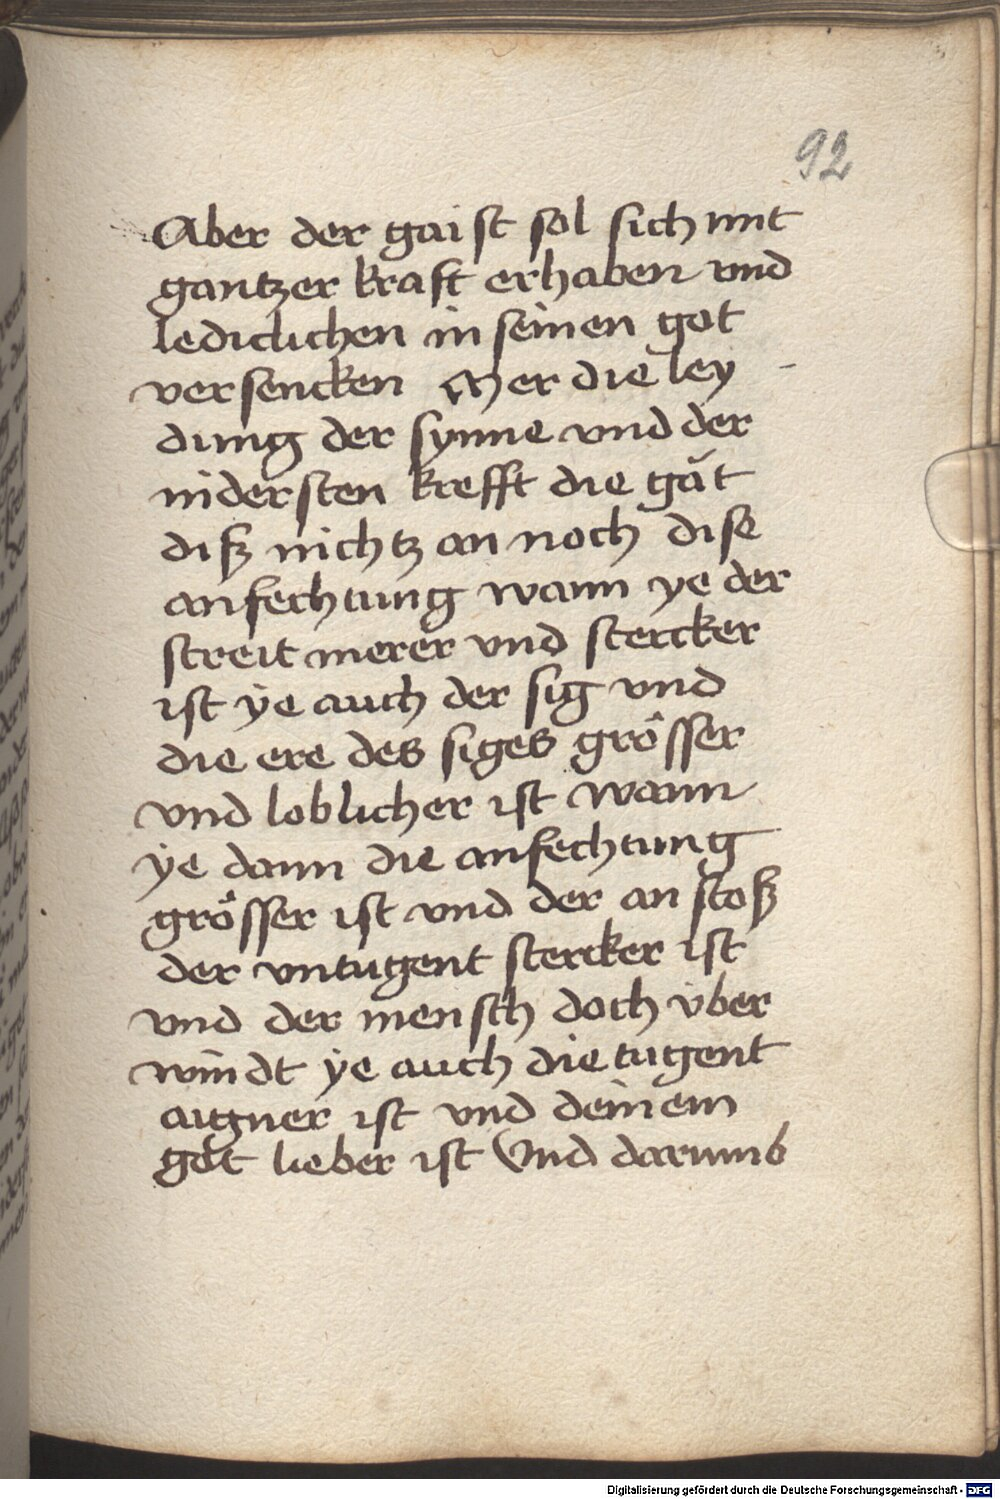 92
Aber der gaist sol sich mit
gantzer kraft erhaben vnd
lediclichen in seinen got
versencken Mer die ley
dung der synne vnd der
nidersten krefft die găt
diß nichtz an noch dise
anfechtung wann ye der
streit merer vnd stercker
ist ÿe auch der sig vnd
die ere des siges grôsser
vnd loblicher ist wann
ÿe dann die anfechtung
grősser ist vnd der an stoß
der vntugent stercker ist
vnd der mensch doch v̇ber
windt ÿe auch die tugent
aigner ist vnd deinem
got lieber ist Vnd darumb
Digitalisierung gefördert durch die Deutsche Forschungsgemeinschaft - DFG